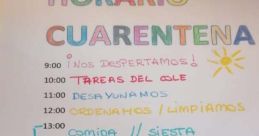 HORARIO
CUARENTENA
9:00 ¡NOS DESPERTAMOS!
10:00 TAREAS DEL COLE
11:00 DESAYUNAMOS
12:00 ORDENAMOS / LIMPIAMOS
13:00 COMIDA // SIESTA